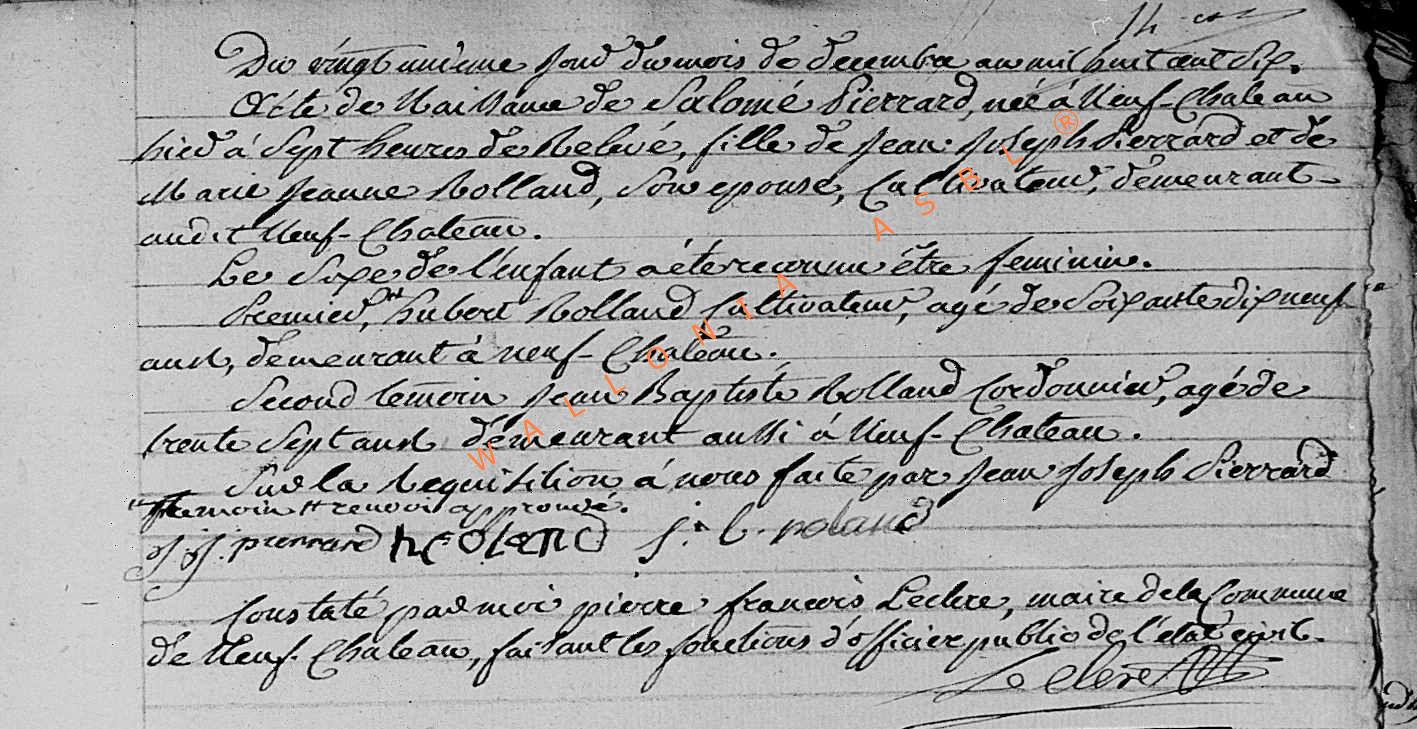 Du vingt unieme jour du mois de decembre an mil huit cent Six.
Acte de Naissance de Salomé Pierrard, née à Neuf-Chateau
hier à Sept heures de Relevé, fille de Jean Joseph Pierrard et de
Marie Jeanne Rolland, Son epouse, Cultivateur, demeurant
audit Neuf-Chateau.
Le Sexe de l'enfant a été reconnu être feminin.
Premier, Hubert Rolland Cultivateur, agé de Soixante dix neuf
ans, demeurant à neuf-Chateau.
Second temoin Jean Baptiste Rolland Cordonnier, agé de
trente Sept ans demeurant aussi à Neuf-Chateau.
Sur la Requisition à nous faite par Jean Joseph Pierrard
temoin renvoi approuvé.
J J. pierrard h Roland j. b. roland
Constaté par moi pierre françois Leclere, maire de la Commune
de Neuf-Chateau, faisant les fonctions d'officier public de l'état civil.
Leclere
WALLONIA ASBL ®